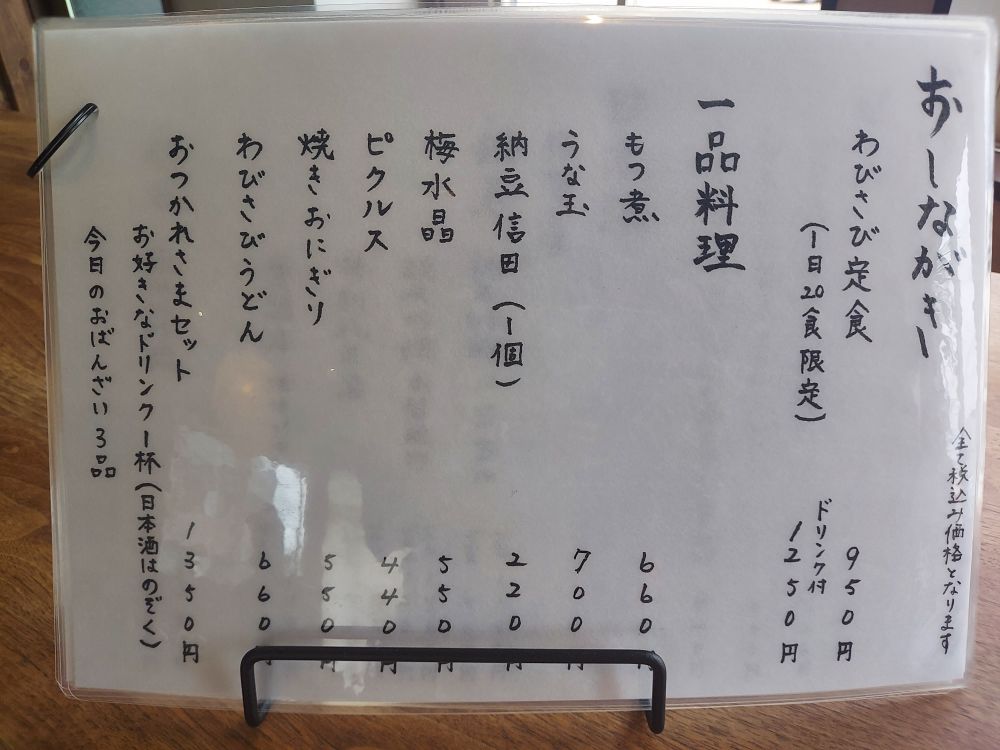 おしながき
全て税込み価格となります
わびさび定食 950円
(1日20食限定) ドリンク付 1250円
一品料理
もつ煮 660円
うな玉 700円
納豆信田(1個) 220円
梅水晶 550円
ピクルス 440円
焼きおにぎり 550円
わびさびうどん 660円
おつかれさまセット 1350円
お好きなドリンク1杯(日本酒はのぞく)
今日のおばんざい3品